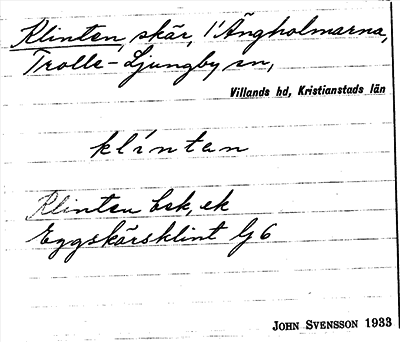 Klinten, skär, i Ängholmarna,
Trolle-Ljungby sn,
Villands hd, Kristianstads län
klíntan
Klinten bsk, ek
Eggskärsklint lj 6
JOHN SVENSSON 1933